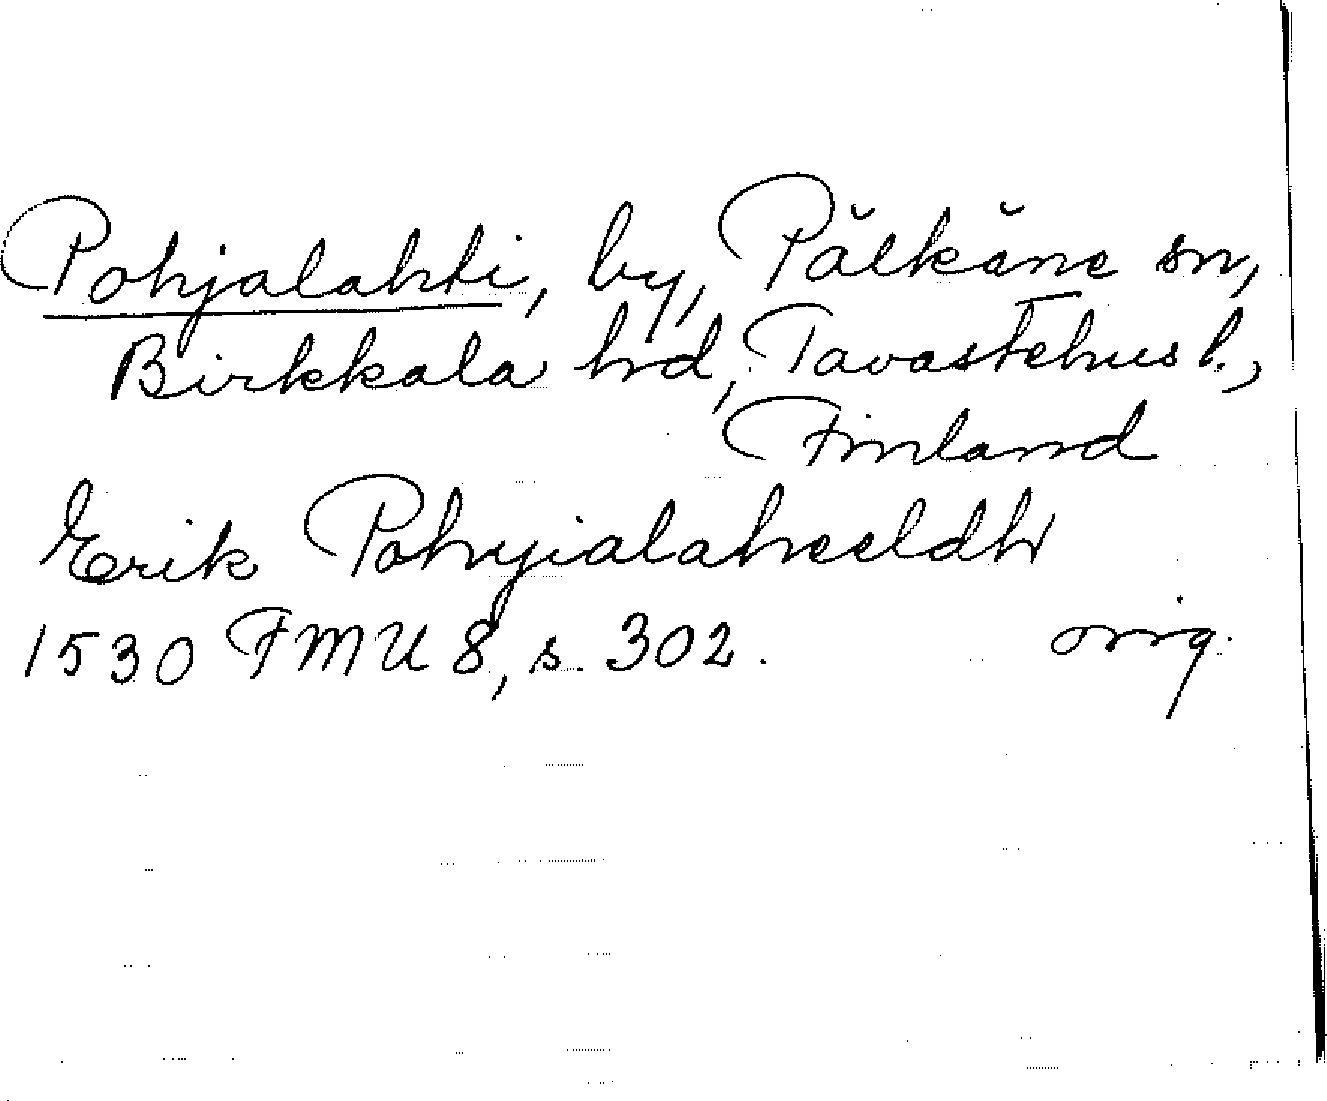 Pohjalahti, by, Pälkäne sn,
Birkkala hd, Tavastehus l.,
Finland
Erik Pohyialaheeldh
1530 FMU 8, s. 302.
orig.